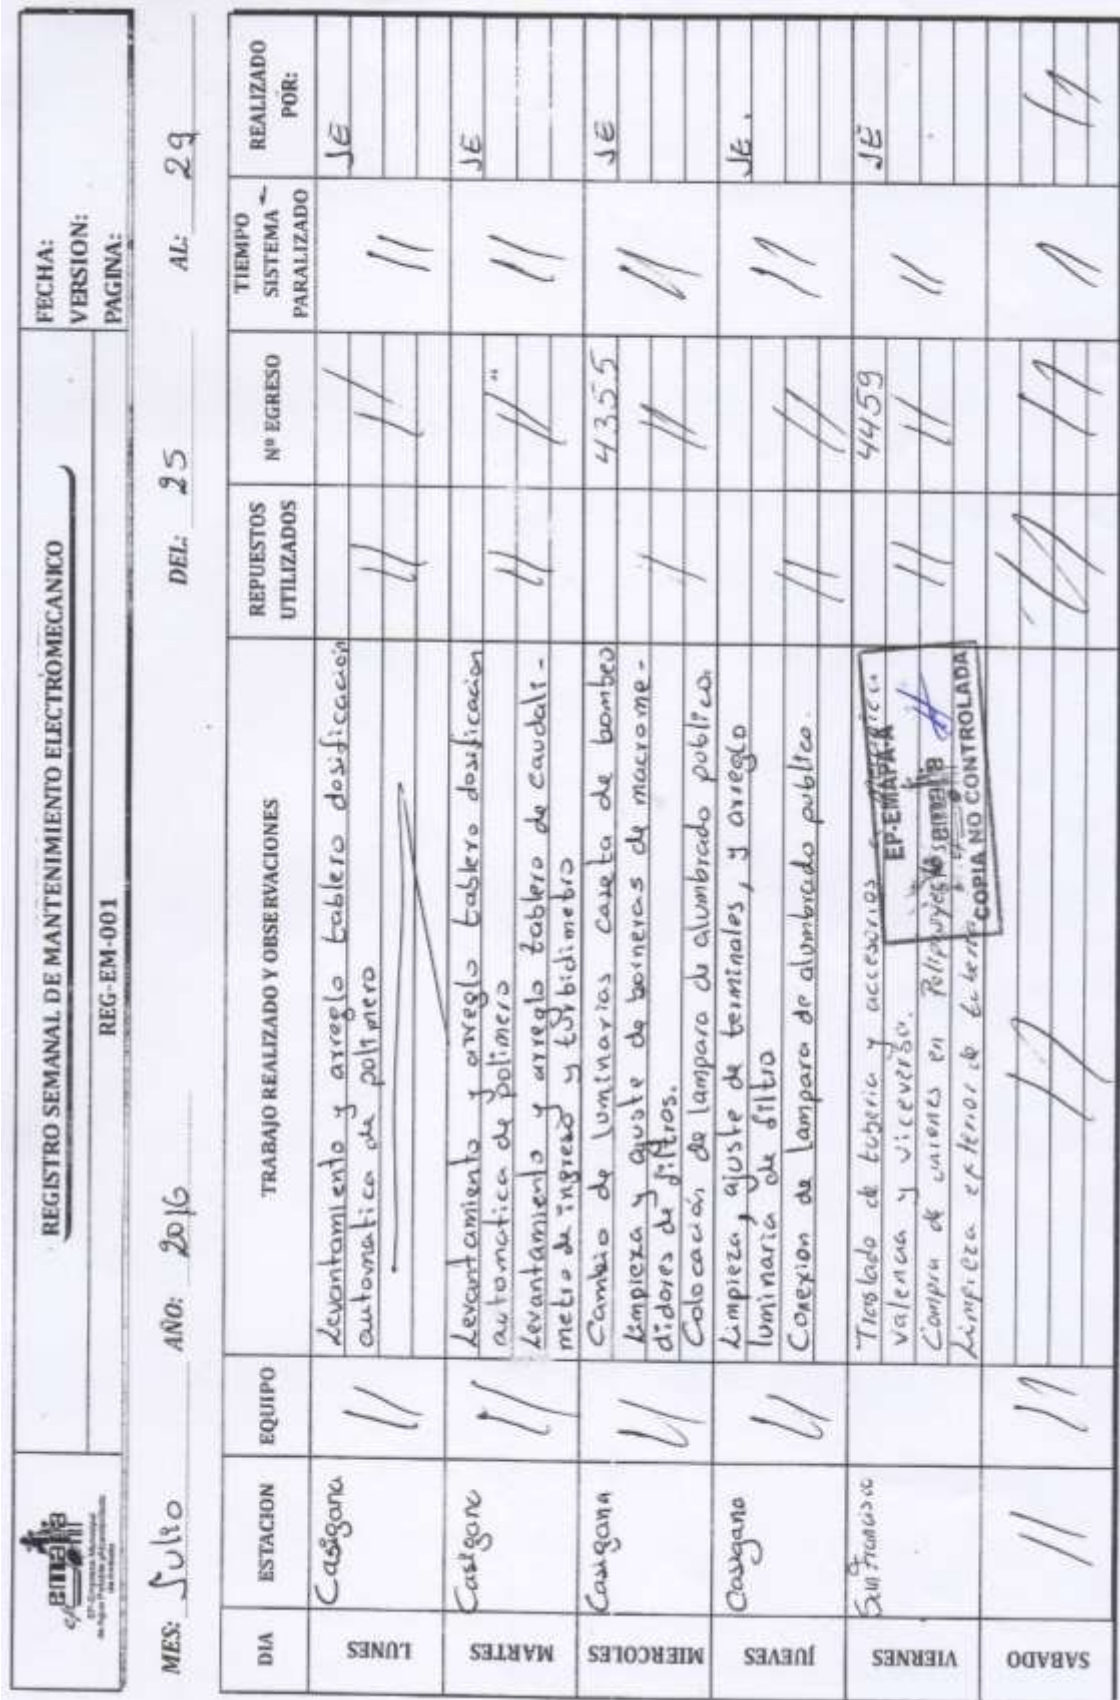 emapa
EP-Empresa Municipal
de Agua Potable y Alcantarillado
de Ambato
REGISTRO SEMANAL DE MANTENIMIENTO ELECTROMECANICO
REG-EM-001
FECHA:
VERSION:
PAGINA:
MES: Julio AÑO: 2016 DEL: 25 AL: 29
DIA ESTACION EQUIPO TRABAJO REALIZADO Y OBSERVACIONES REPUESTOS UTILIZADOS Nº EGRESO TIEMPO SISTEMA PARALIZADO REALIZADO POR:
LUNES Casigana // Levantamiento y arreglo tablero dosificacion // // // JE
automatica de polimero
MARTES Casigana // Levantamiento y arreglo tablero dosificacion // // // JE
automatica de polimero
Levantamiento y arreglo tablero de caudali-
metro de ingreso y turbidimetro
MIERCOLES Casigana // Cambio de luminarias caseta de bombeo / 4355 // // JE
Limpieza y ajuste de borneras de macrome-
didores de filtros.
Colocación de lampara de alumbrado publico.
JUEVES Casigana // Limpieza, ajuste de terminales, y arreglo // // // JE.
luminaria de filtro
Conexion de lampara de alumbrado publico.
VIERNES San Francisco Traslado de tuberia y accesorios // 4459 // // JE
valencia y viceversa.
Compra de uniones en
Limpieza exterior de
EP-EMAPA-A
emapa
COPIA NO CONTROLADA
SABADO // // // // // // //